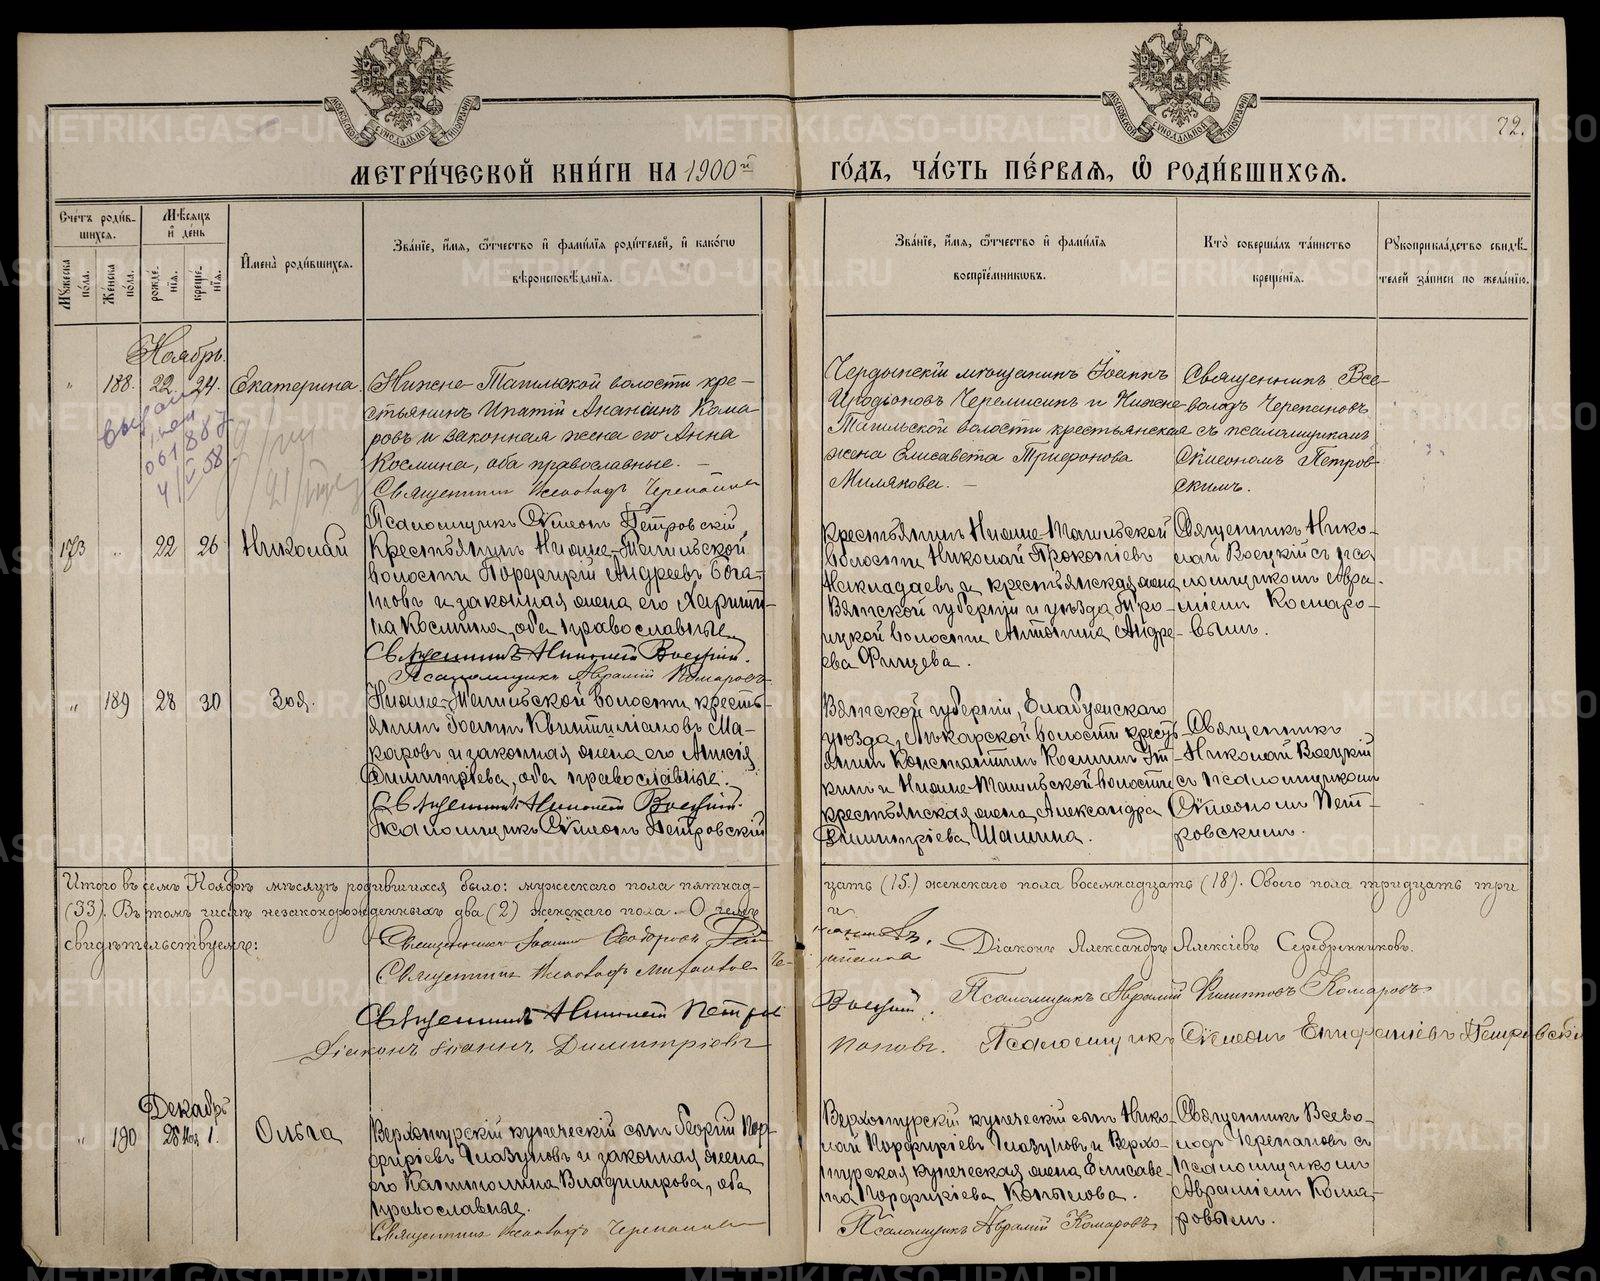 МОСКОВСКОЙ СѴНОДАЛЬНОЙ ТИПОГРАФІИ
МОСКОВСКОЙ СѴНОДАЛЬНОЙ ТИПОГРАФІИ
72.
МЕТРИ́ЧЕСКОЙ КНИ́ГИ НА 1900й ГО́ДЪ, ЧА́СТЬ ПЕ́РВАЯ, Ѡ РОДИ́ВШИХСЯ.
Сче́тъ роди́вшихся.
Му́жеска по́ла.
Же́нска по́ла.
Мѣ́сяцъ и де́нь
рожде́нія.
креще́нія.
Имена̀ роди́вшихся.
Зва́ніе, и́мя, ѻ́тчество и фами́лія роди́телей, и како́гѡ
вѣроисповѣ́данія.
Зва́ніе, и́мя, ѻ́тчество и фами́лія
воспріе́мниковъ.
Кто̀ соверша́лъ та́инство
креще́нія.
Рукоприкла́дство свидѣ́-
телей за́писи по жела́нію.
Ноябрь.
" 188. 22. 24. Екатерина.
Нижне-Тагильской волости кре-
стьянинъ Ипатій Ананіинъ Кома-
ровъ и законная жена его Анна
Космина, оба православные. —
Священникъ Всеволодъ Черепановъ
Псаломщикъ Сѵмеонъ Петровскій
Чердынскій мѣщанинъ Іоаннъ
Иродіоновъ Черемисинъ и Нижне-
Тагильской волости крестьянская
жена Елисавета Трифонова
Милякова. —
Священникъ Все-
володъ Черепановъ
съ псаломщикомъ
Сѵмеономъ Петров-
скимъ.
173 " 22 26 Николай
Крестьянинъ Нижне-Тагильской
волости Порфирій Андреевъ Бога-
товъ и законная жена его Харити-
на Космина, оба православные.
Священникъ Николай Воецкій.
Псаломщикъ Авраамій Комаровъ
Крестьянинъ Нижне-Тагильской
волости Николай Прокопіевъ
Накладаевъ и крестьянская жена
Вятской губерніи и уѣзда, Тро-
ицкой волости Антонина Андре-
ева Финцева.
Священникъ Нико-
лай Воецкій съ пса-
ломщикомъ Авра-
міемъ Комаро-
вымъ.
" 189 28 30 Зоя.
Нижне-Тагильской волости, кресть-
янинъ Іоаннъ Квинтиліановъ Ма-
каровъ и законная жена его Анисія
Димитріева, оба православные.
Священникъ Николай Воецкій.
Псаломщикъ Сѵмеонъ Петровскій
Вятской губерніи, Елабужскаго
уѣзда, Лекарской волости кресть-
янинъ Константинъ Космин
и Нижне-Тагильской волости
крестьянская жена Александра
Димитріева Шашина.
Священникъ
Николай Воецкій
съ псаломщикомъ
Сѵмеономъ Пет-
ровскимъ.
Итого въ семъ Ноябрѣ мѣсяцѣ родившихся было: мужескаго пола пятнад-
цать (15.) женскаго пола восемнадцать (18). Обоего пола тридцать три
(33). Въ томъ числѣ незаконорожденныхъ два (2) женскаго пола. О чемъ и
свидѣтельствуемъ:
Священникъ Іоаннъ Ѳеодоровъ
Діаконъ Александръ Алексіевъ Серебренниковъ.
Священникъ Всеволодъ Че-
Священникъ Николай Петровъ Воецкій.
Псаломщикъ Авраамій Филипповъ Комаровъ
Діаконъ Іоаннъ Димитріевъ Поповъ.
Псаломщикъ Сѵмеонъ Епифаніевъ Петровскій
Декабрь
" 190 28 Ноя 1. Ольга
Верхотурскій купеческій сынъ Георгій Пор-
фиріевъ Глазуновъ и законная жена
его Капитолина Владимірова, оба
православные.
Священникъ Всеволодъ Черепановъ
Верхотурскій купеческій сынъ Нико-
лай Порфиріевъ Глазуновъ и Верхо-
турская купеческая жена Елисаве-
та Порфиріева Копылова.
Псаломщикъ Авраамій Комаровъ
Священникъ Всево-
лодъ Черепановъ съ
псаломщикомъ
Авраміемъ Кома-
ровымъ.
METRIKI.GASO-URAL.RU